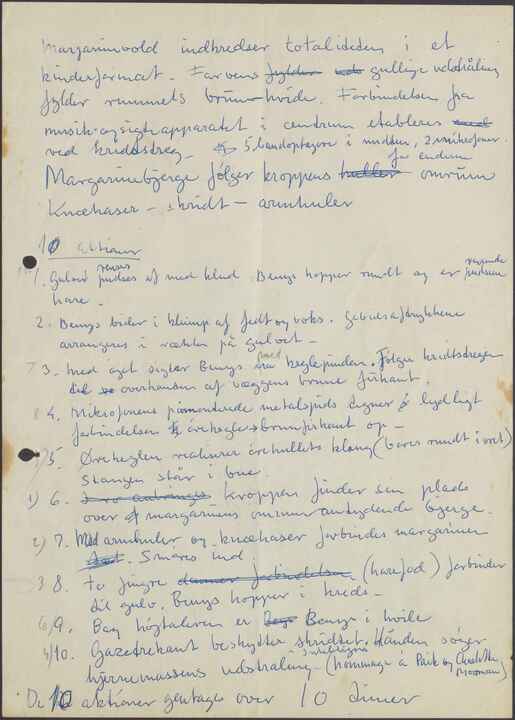 Margarinevold indkredser totaliteten i et
kinderformat. Farvens fylder gullige udstråling
fylder rummets brun-hvide. Forbindelsen fra
musik-og sigteapparatet i centrum etableres med
ved kridtstreg. 5 båndoptagere i midten, 2 mikrofoner
for enderne
Margarinebjerge følger kroppens huller omrum
Knæhaser – skridt – armhuler
10 aktioner
1. Gulvet renses pudses af med klud. Beuys hopper rundt og er pudsende
hare.
2. Beuys bider i klump af fedt og voks. Gebisaftrykkene
arrangeres i række på gulvet –
3. med øget sigter Beuys med keglepinden. Følger kridtstregen
til overkanten af væggens brune firkant.
4. Mikrofonens påmonterede metalspids tegner lydligt
forbindelsen ørekegle + brun firkant op –
5. Ørekeglen realiserer ørehullets klang (bores rundt i øret)
Stangen står i bue.
6. Kroppens finder sin plads
over margarinens omrum antydende bjerge.
2) 7. Med armhuler og knæhaser forbindes margarinen
Smøres ind.
3 8. to fingre danner forbindelse (harefod) forbinder
til gulv. Beuys hopper i kreds –
9. Bag højtaleren er Beuys i hvile
4/10. Gazetrekant beskytter skridtet. Hånden søger
hjernemassens udstråling – (hommage à Paik og Charlotte
Moorman)
De 10 aktioner gentages over 10 timer